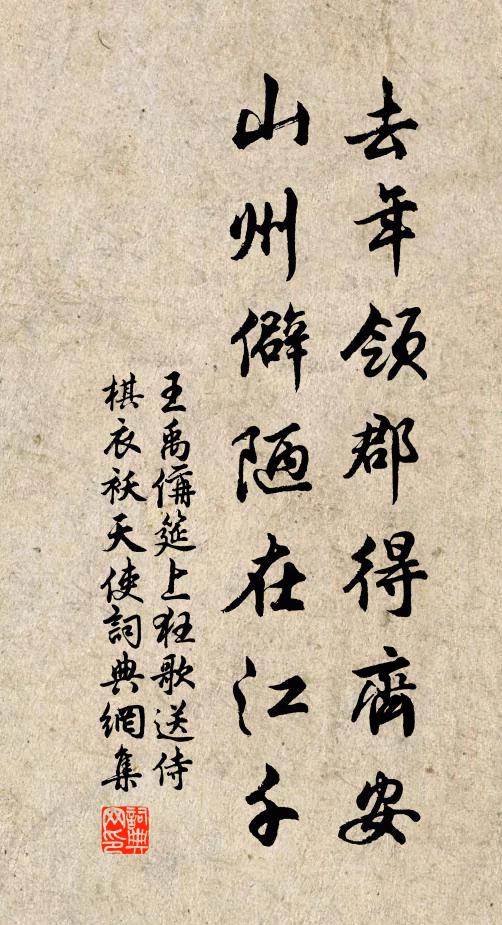 去年領郡得齊安
山州僻陋在江千
王禹偁筵上狂歌送侍
棋衣袄天使詞典網集
詞典
网印